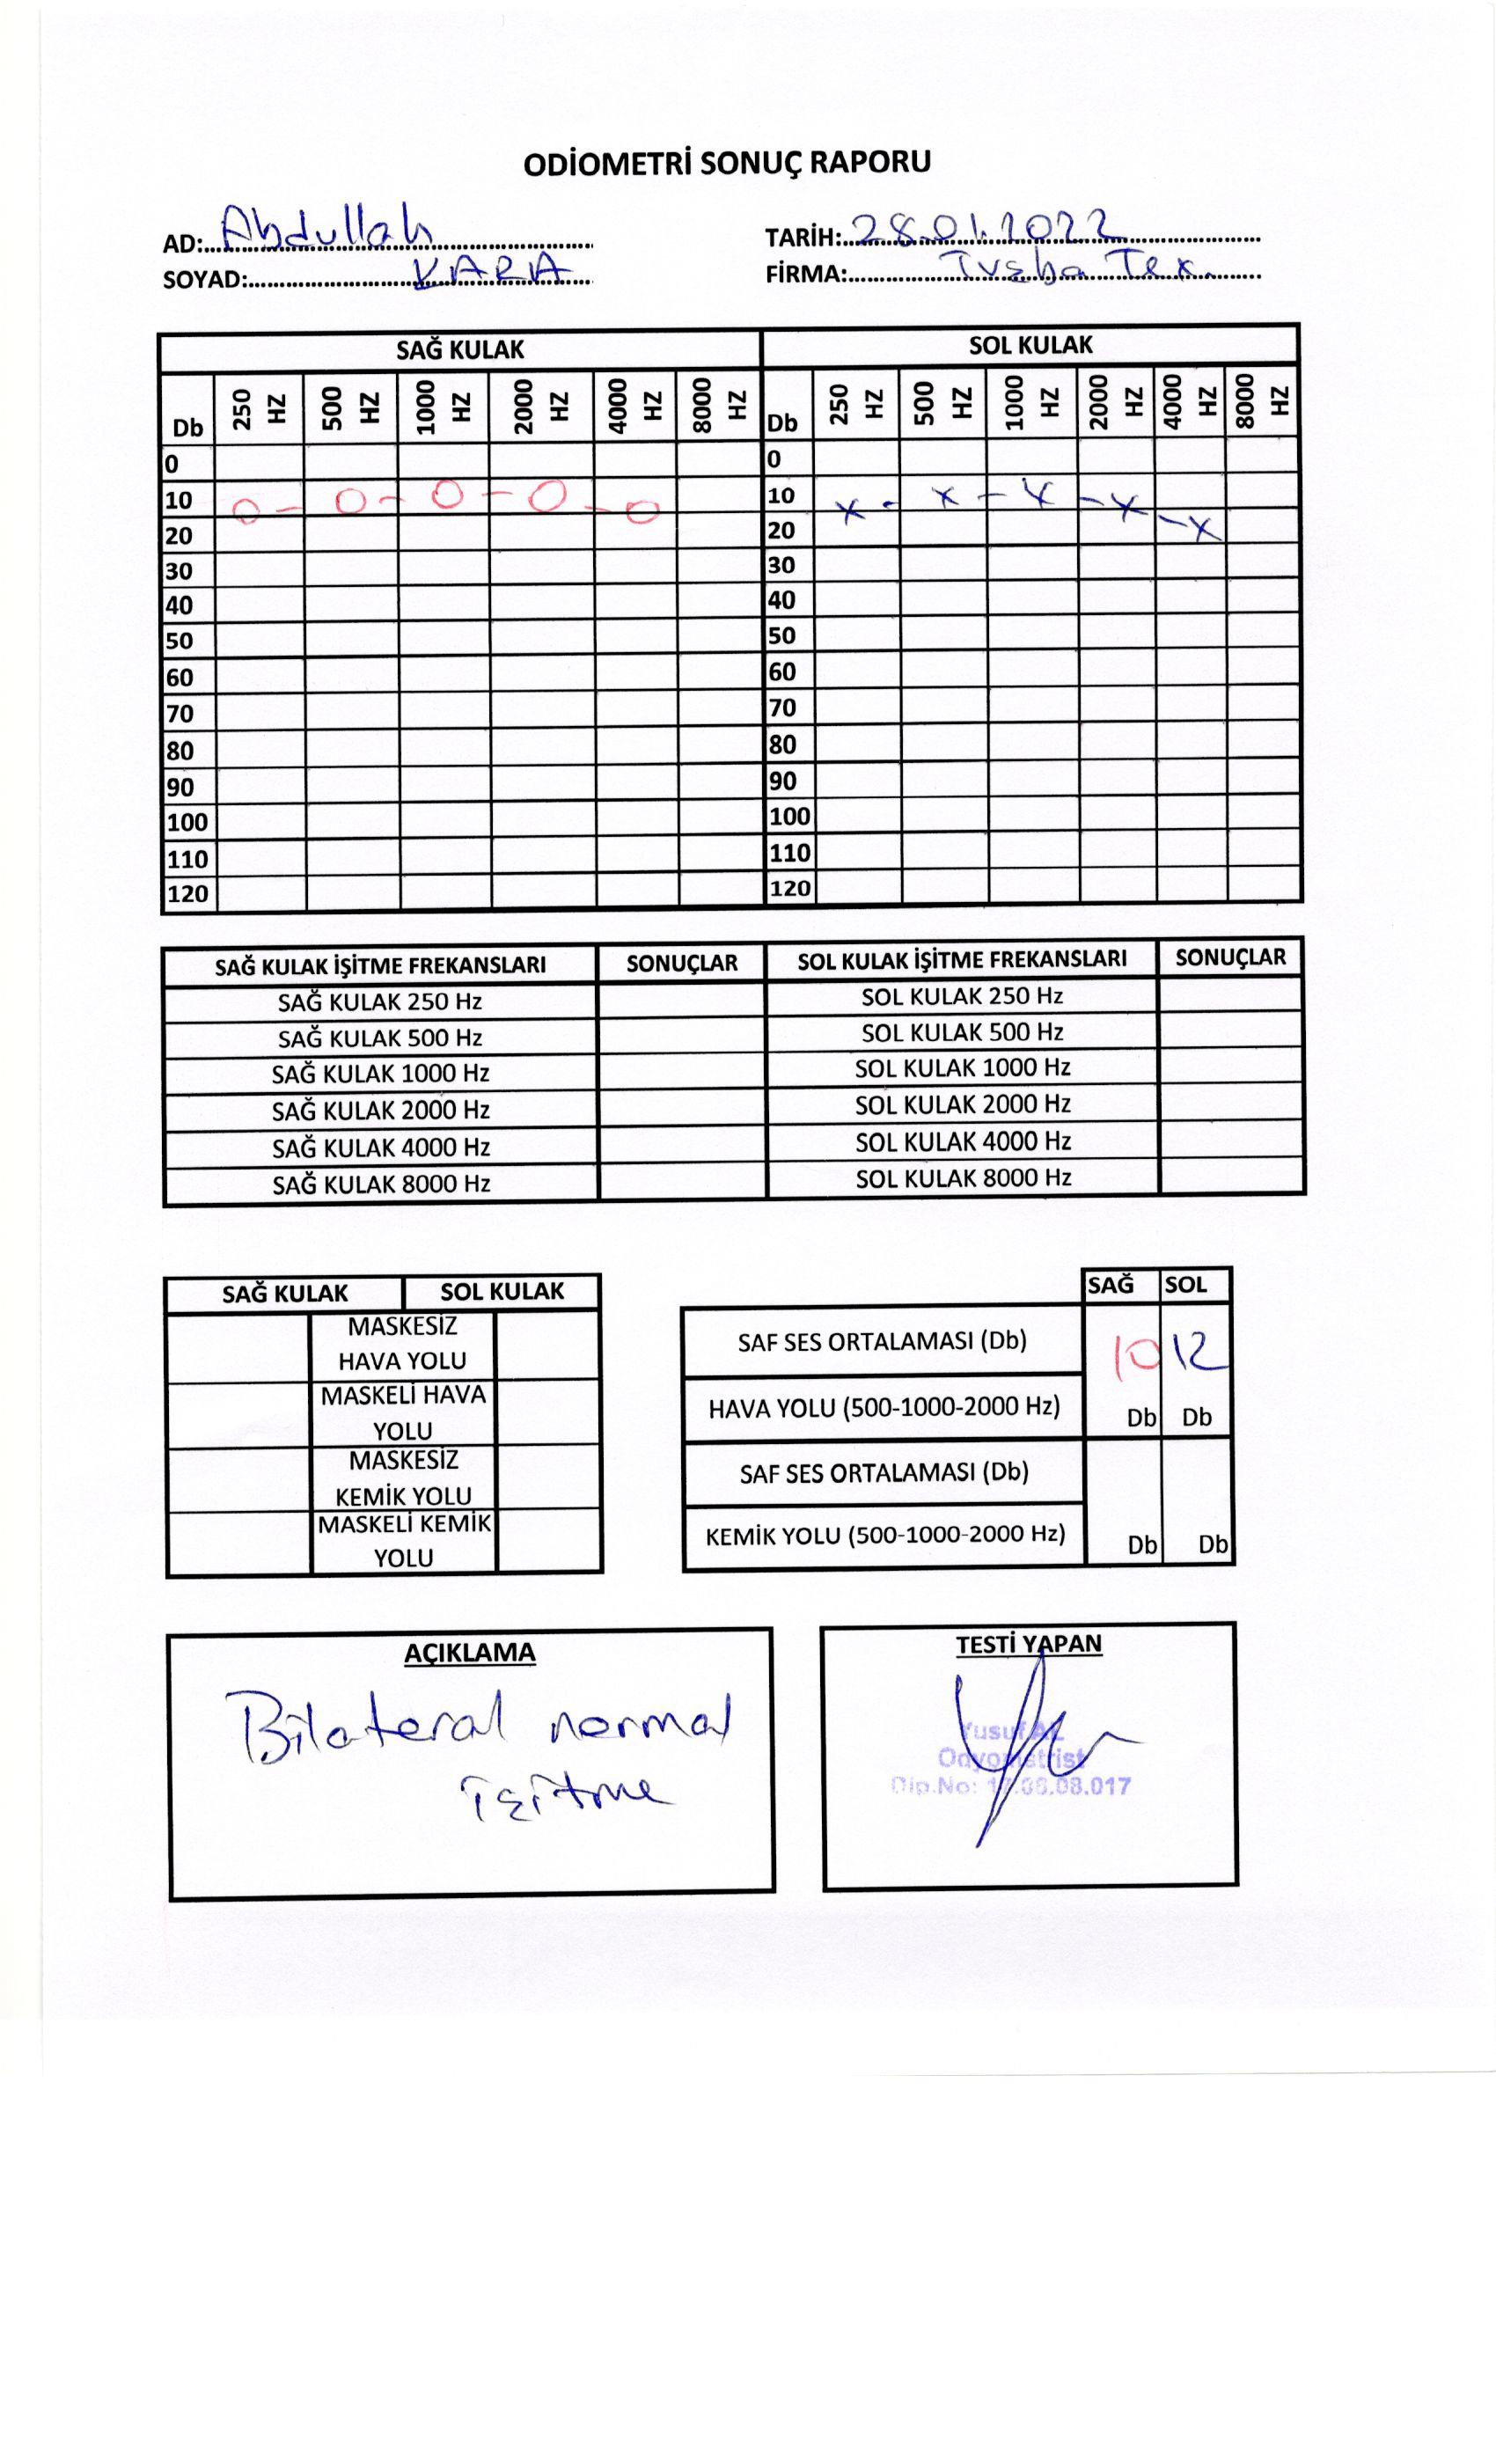 ODİOMETRİ SONUÇ RAPORU
AD: Abdullah TARİH: 28.01.2022
SOYAD: KARA FİRMA: Tex.
SAĞ KULAK SOL KULAK
Db 250 HZ 500 HZ 1000 HZ 2000 HZ 4000 HZ 8000 HZ Db 250 HZ 500 HZ 1000 HZ 2000 HZ 4000 HZ 8000 HZ
0 0
10 O - O - O - O - O 10 x - x - x - x - x
20 20
30 30
40 40
50 50
60 60
70 70
80 80
90 90
100 100
110 110
120 120
SAĞ KULAK İŞİTME FREKANSLARI SONUÇLAR SOL KULAK İŞİTME FREKANSLARI SONUÇLAR
SAĞ KULAK 250 Hz SOL KULAK 250 Hz
SAĞ KULAK 500 Hz SOL KULAK 500 Hz
SAĞ KULAK 1000 Hz SOL KULAK 1000 Hz
SAĞ KULAK 2000 Hz SOL KULAK 2000 Hz
SAĞ KULAK 4000 Hz SOL KULAK 4000 Hz
SAĞ KULAK 8000 Hz SOL KULAK 8000 Hz
SAĞ KULAK SOL KULAK
MASKESİZ
HAVA YOLU
MASKELİ HAVA
YOLU
MASKESİZ
KEMİK YOLU
MASKELİ KEMİK
YOLU
SAĞ SOL
SAF SES ORTALAMASI (Db) 10 12
HAVA YOLU (500-1000-2000 Hz) Db Db
SAF SES ORTALAMASI (Db)
KEMİK YOLU (500-1000-2000 Hz) Db Db
AÇIKLAMA
Bilateral normal
işitme
TESTİ YAPAN
Yusuf
Odyometrist
Dip.No: